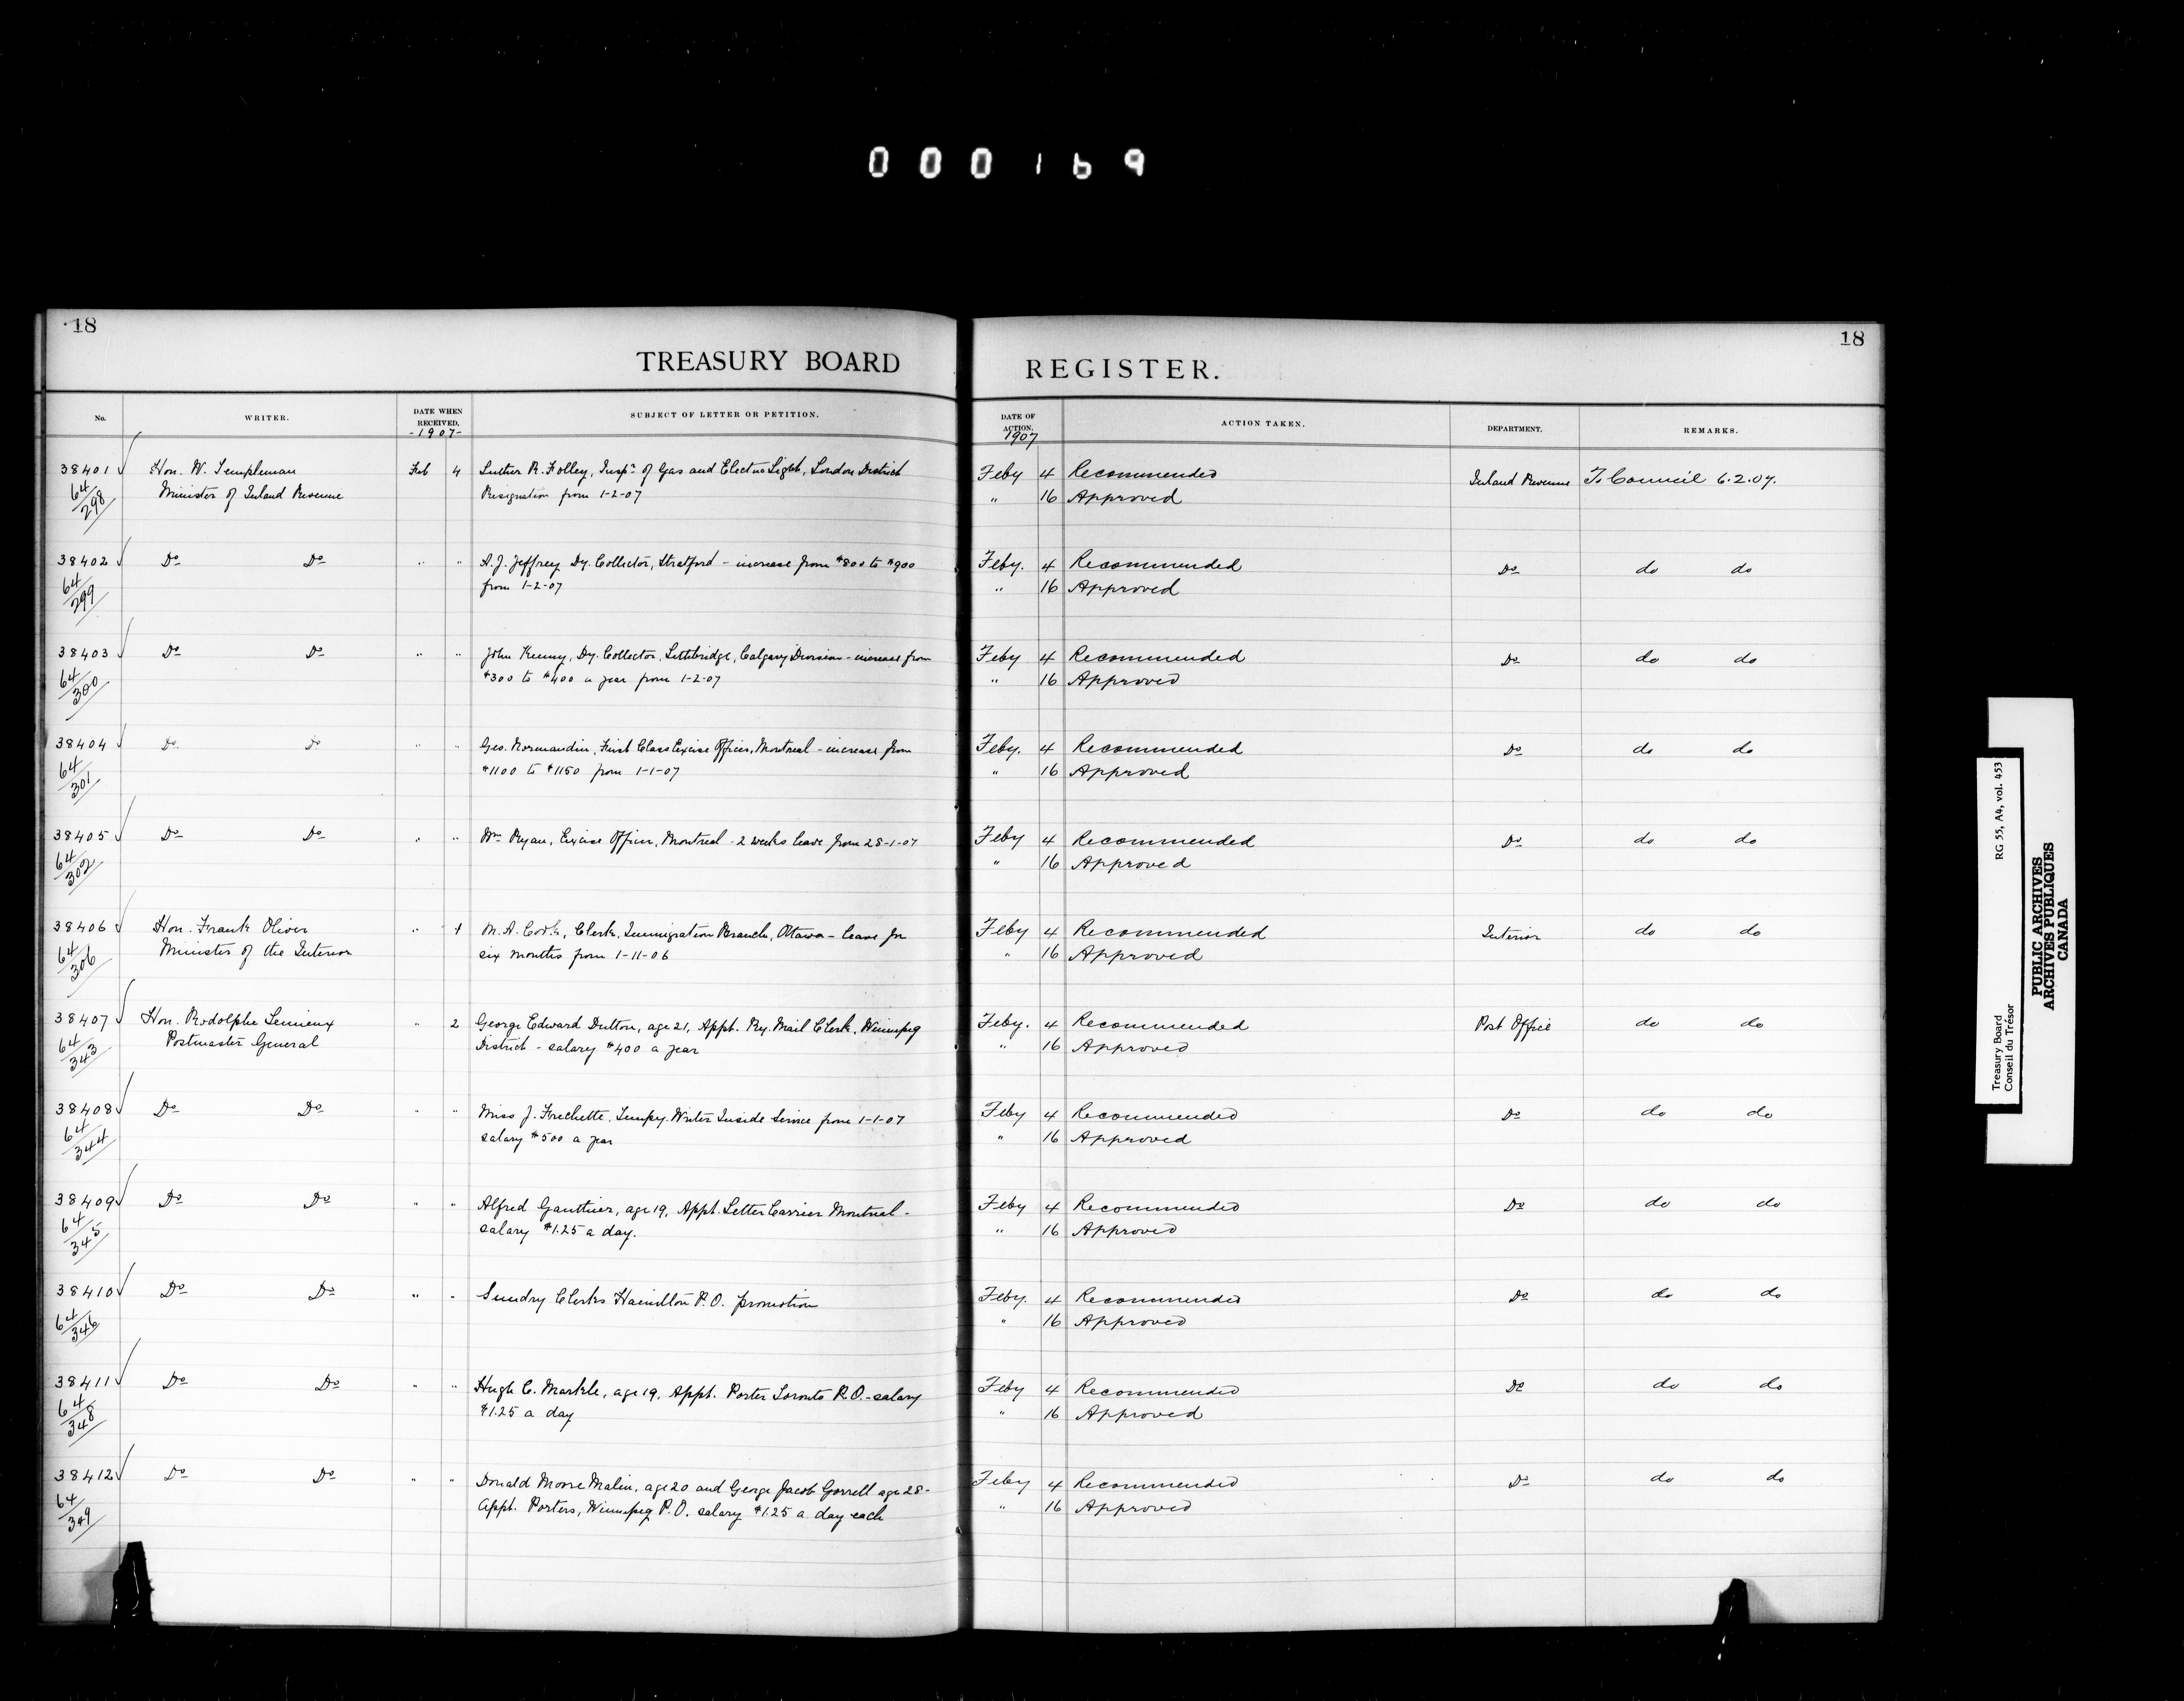 000169
18
TREASURY BOARD
REGISTER.
18
No. WRITER. DATE WHEN RECEIVED. -1907- SUBJECT OF LETTER OR PETITION. DATE OF ACTION. 1907 ACTION TAKEN. DEPARTMENT. REMARKS.
38401 Hon. W. Templeman Feb 4 Luther R. Folley, Inspr of Gas and Electric Light, London District Feby 4 Recommended Inland Revenue To Council 6.2.07.
64/298 Minister of Inland Revenue Resignation from 1-2-07 " 16 Approved
38402 Do Do " " A. J. Jeffrey Dy. Collector, Stratford - increase from $800 to $900 Feby. 4 Recommended Do do do
64/299 from 1-2-07 " 16 Approved
38403 Do Do " " John Kenny, Dy. Collector, Lethbridge, Calgary Division - increase from Feby 4 Recommended Do do do
64/300 $300 to $400 a year from 1-2-07 " 16 Approved
38404 Do Do " " Geo. Normandin, First Class Excise Officer, Montreal - increase from Feby. 4 Recommended Do do do
64/301 $1100 to $1150 from 1-1-07 " 16 Approved
38405 Do Do " " Wm Ryan, Excise Officer, Montreal - 2 weeks leave from 28-1-07 Feby 4 Recommended Do do do
64/302 " 16 Approved
38406 Hon. Frank Oliver " 1 M. A. Clerk, Immigration Branch, Ottawa - leave for Feby 4 Recommended Interior do do
64/306 Minister of the Interior six months from 1-11-06 " 16 Approved
38407 Hon. Rodolphe Lemieux " 2 George Edward Dutton, age 21, Appt. Ry. Mail Clerk, Winnipeg Feby. 4 Recommended Post Office do do
64/343 Postmaster General District - salary $400 a year " 16 Approved
38408 Do Do " " Miss J. Frechette, Tempy. Writer Inside Service from 1-1-07 Feby 4 Recommended Do do do
64/344 salary $500 a year " 16 Approved
38409 Do Do " " Alfred Gauthier, age 19, Appt. Letter Carrier Montreal - Feby 4 Recommended Do do do
64/345 salary $1.25 a day. " 16 Approved
38410 Do Do " " Sundry Clerks Hamilton P.O. promotion Feby. 4 Recommended Do do do
64/346 " 16 Approved
38411 Do Do " " Hugh C. Markle, age 19, Appt. Porter Toronto P.O. - salary Feby 4 Recommended Do do do
64/348 $1.25 a day " 16 Approved
38412 Do Do " " Donald Moore Malin, age 20 and George Jacob Gorrell age 28 - Feby 4 Recommended Do do do
64/349 Appt. Porters, Winnipeg P.O. salary $1.25 a day each " 16 Approved
Treasury Board RG 55, A4, vol. 453
Conseil du Trésor
PUBLIC ARCHIVES
ARCHIVES PUBLIQUES
CANADA